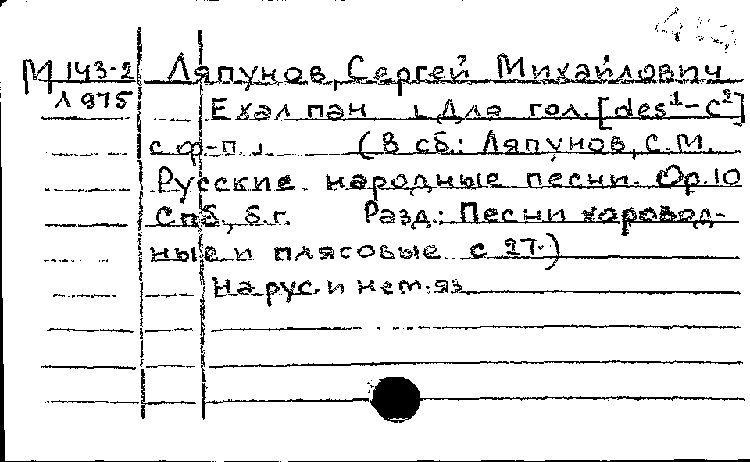 М 143-2 Ляпунов, Сергей Михайлович
Л 975 Ехал пан ⌊Для гол. [des¹-c²]
с ф-п.⌋ (В сб.: Ляпунов, С.М.
Русские народные песни. Op. 10
Спб, б.г. Разд.: Песни хоровод-
ные и плясовые с 27.)
На рус. и нем. яз.